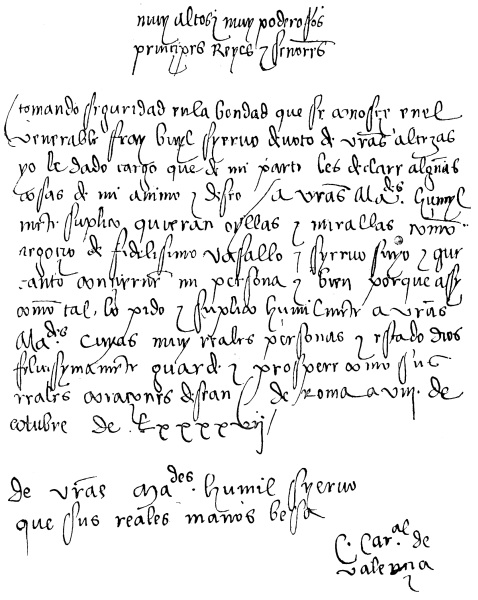 muy altos y muy poderosos
principes Reyes y señores
tomando seguridad en la bondad que se conosze en el
venerable fray buyl syervo devoto de vras altezas
yo le dado cargo que de mi parti les declare algunas
cosas de mi animo y deseo / a vras Mades. humyl
mente suplico quieran oyllas y mirallas como
negoçio de fidelisimo vasallo y syervo suyo y que
tanto conviene mi persona y bien porque assy
como tal lo pido y suplico humilmente a vras
Mades cuyas muy reales personas y estado dios
felissymamente guarde y prospere como sus
reales coraçones desean / de Roma a viii. de
otubre de Lxxxxvij /
de vras Mades. humil syervo
que sus reales manos besa
C. Car.al de
valençia